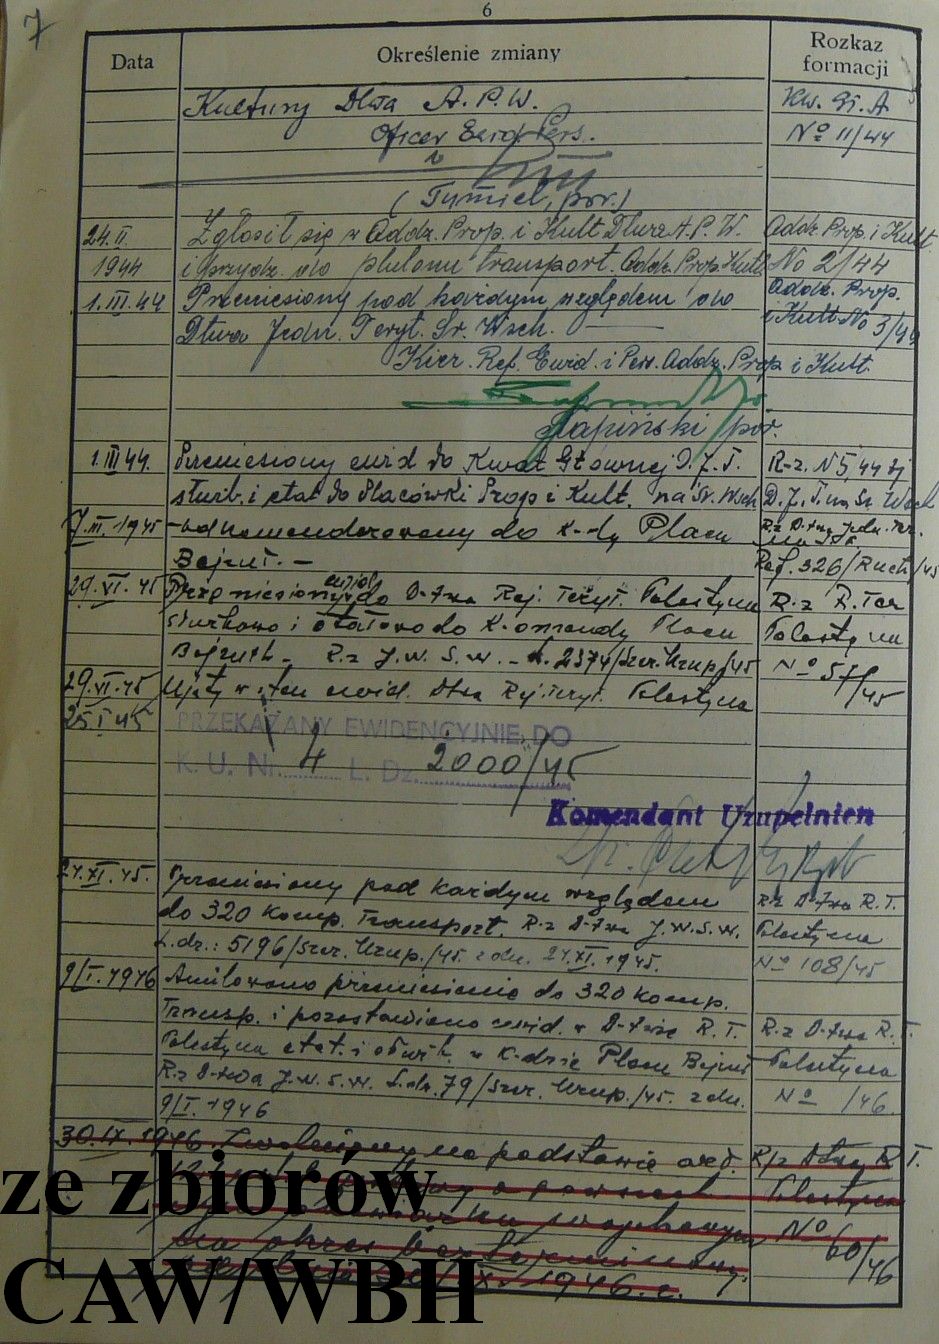 7
6
Data Określenie zmiany Rozkaz formacji
Kultury Dtwa A.P.W. Kw. Gł. A
Oficer Ewid. Pers. No 11/44
(Tumiel, por.)
24.II. Zgłosił się w Oddz. Prop. i Kult Dtwa A.P.W. Oddz. Prop. i Kult
1944 i przydz. do plutonu transport. Oddz. Prop. Kult No 2/44
1.III.44 Przeniesiony pod każdym względem do Oddz. Prop.
Dtwa Jedn. Teryt. Śr. Wsch. i Kult. No 3/44
Kier. Ref. Ewid. i Pers. Oddz. Prop. i Kult.
Łapiński por.
1.III 44. Przeniesiony ewid do Kwat Głównej D.J.T. R-z. N 5/44
służb. i etat do Placówki Prop i Kult. na Śr. Wsch D.J.T. na Śr Wsch
7.III.1945 – odkomenderowany do K-dy Placu R-z D-twa Jedn. Ter.
Bejrut. – Ref. 326/Ruch/45
29.VI.45 Przeniesiony ewid do D-twa Rej. Teryt. Palestyna R-z R. Ter
służbowo i etatowo do Komendy Placu Palestyna
Bejruth – R-z J.W.S.W. – L. 2374/Szer. Uzup/45 No 57/45
29.VI.45 Ujęty w stan ewid. Dtwa Rej. Teryt. Palestyna
25.I.45 PRZEKAZANY EWIDENCYJNIE DO
K. U. Nr. 4 L. Dz. 2000/45
Komendant Uzupełnien
27.XI.45. Przeniesiony pod każdym względem R-z D-twa R.T.
do 320 Komp. Transport. R-z D-twa J.W.S.W. Palestyna
L.dz.: 5196/Szer. Uzup./45 z dn. 27.XI.1945. No 108/45
9/I.1946 Anulowano przeniesienie do 320 Komp.
Transp. i pozostawiono ewid. w D-twie R.T. R-z D-twa R.T.
Palestyna etat. i służb. w K-dzie Placu Bejrut Palestyna
R-z D-twa J.W.S.W. L.dz. 79/Szer. Uzup./45. z dn. No /46.
9/I.1946
30.IX.1946. Zwolniony na podstawie art. R/z Dtwa R.T.
ustawy o powsz. Palestyna
obowiązku wojskowym No
na okres bezterminowy 60/46
IX.1946.r.
ze zbiorów
CAW/WBH